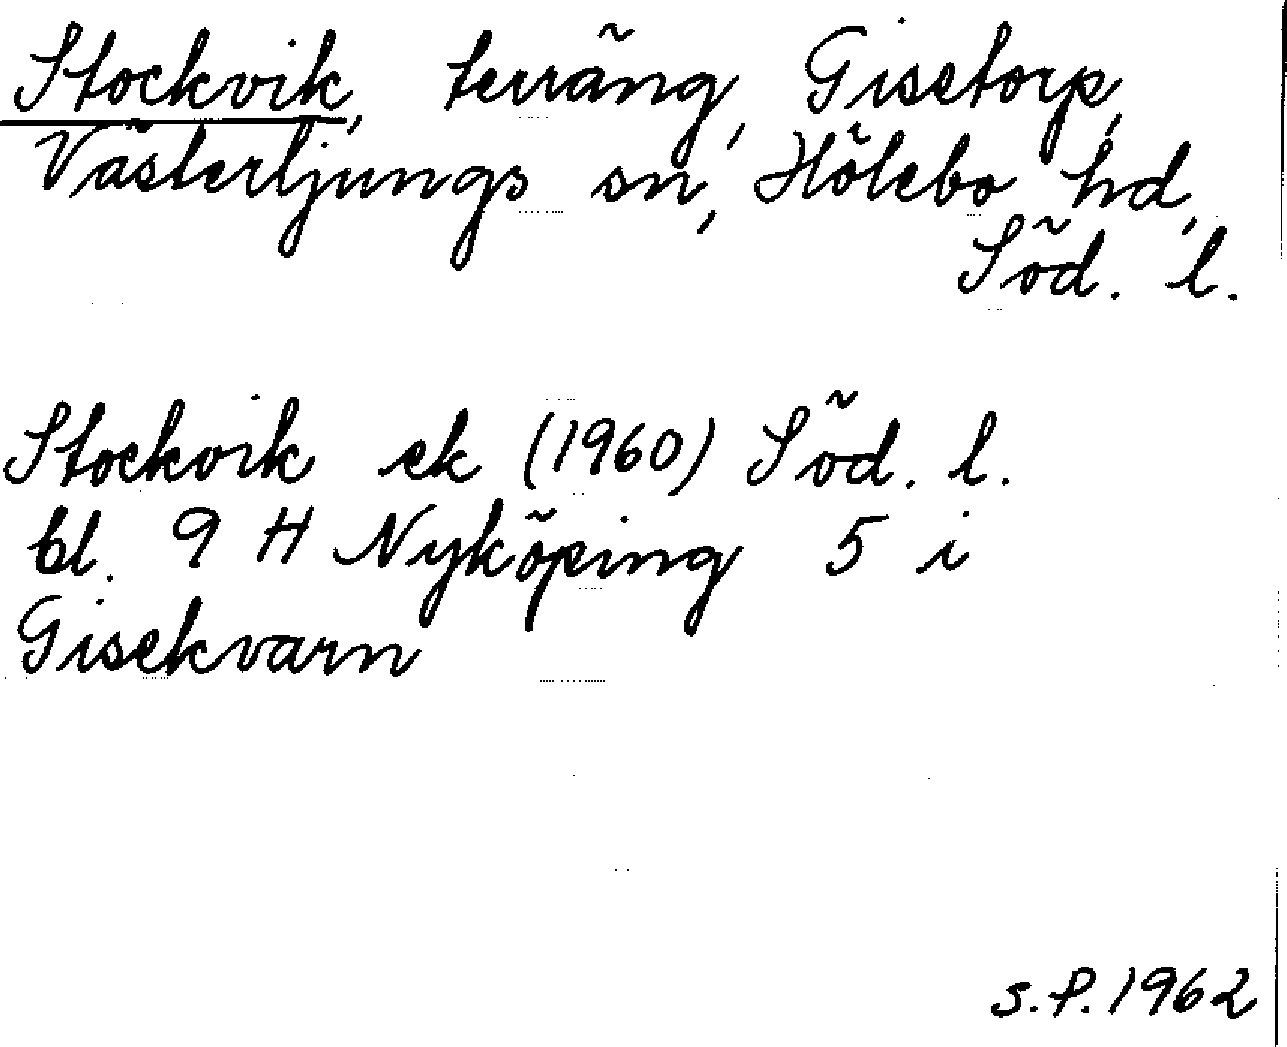 Stockvik, terräng, Gisetorp,
Västerljungs sn, Hölebo hd,
Söd. l.
Stockvik ek (1960) Söd. l.
bl. 9 H Nyköping 5 i
Gisekvarn
S.P. 1962